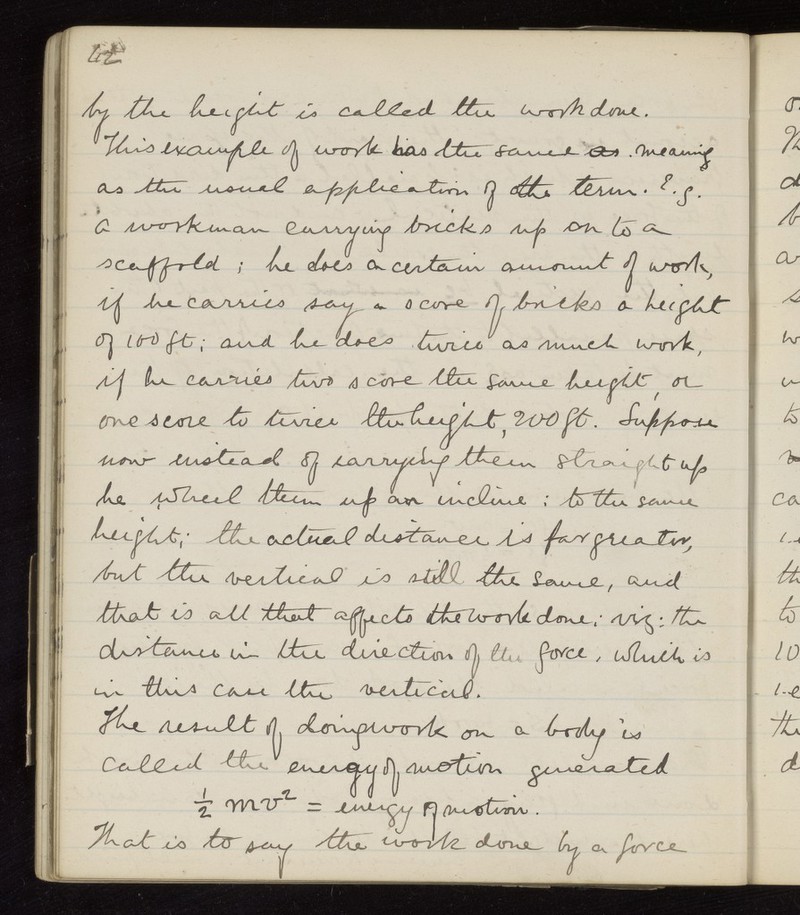 by the height is called the work done.
This example of work has the same as meaning
as the usual application of the term. E.g.
a workman carrying bricks up on to a
scaffold; he does a certain amount of work,
if he carries say a score of bricks a height
of 100 ft; and he does twice as much work,
if he carries two score the same height, or
one score to twice the height, 200 ft. Suppose
now instead of carrying them straight up
he wheel them up an incline: to the same
height; the actual distance is far greater,
but the vertical is still the same, and
that is all that affects the work done; viz: the
distance in the direction of the force, which is
in this case the vertical.
The result of doing work on a body is
called the energy of motion generated
½ mv² = energy of motion.
That is to say the work done by a force